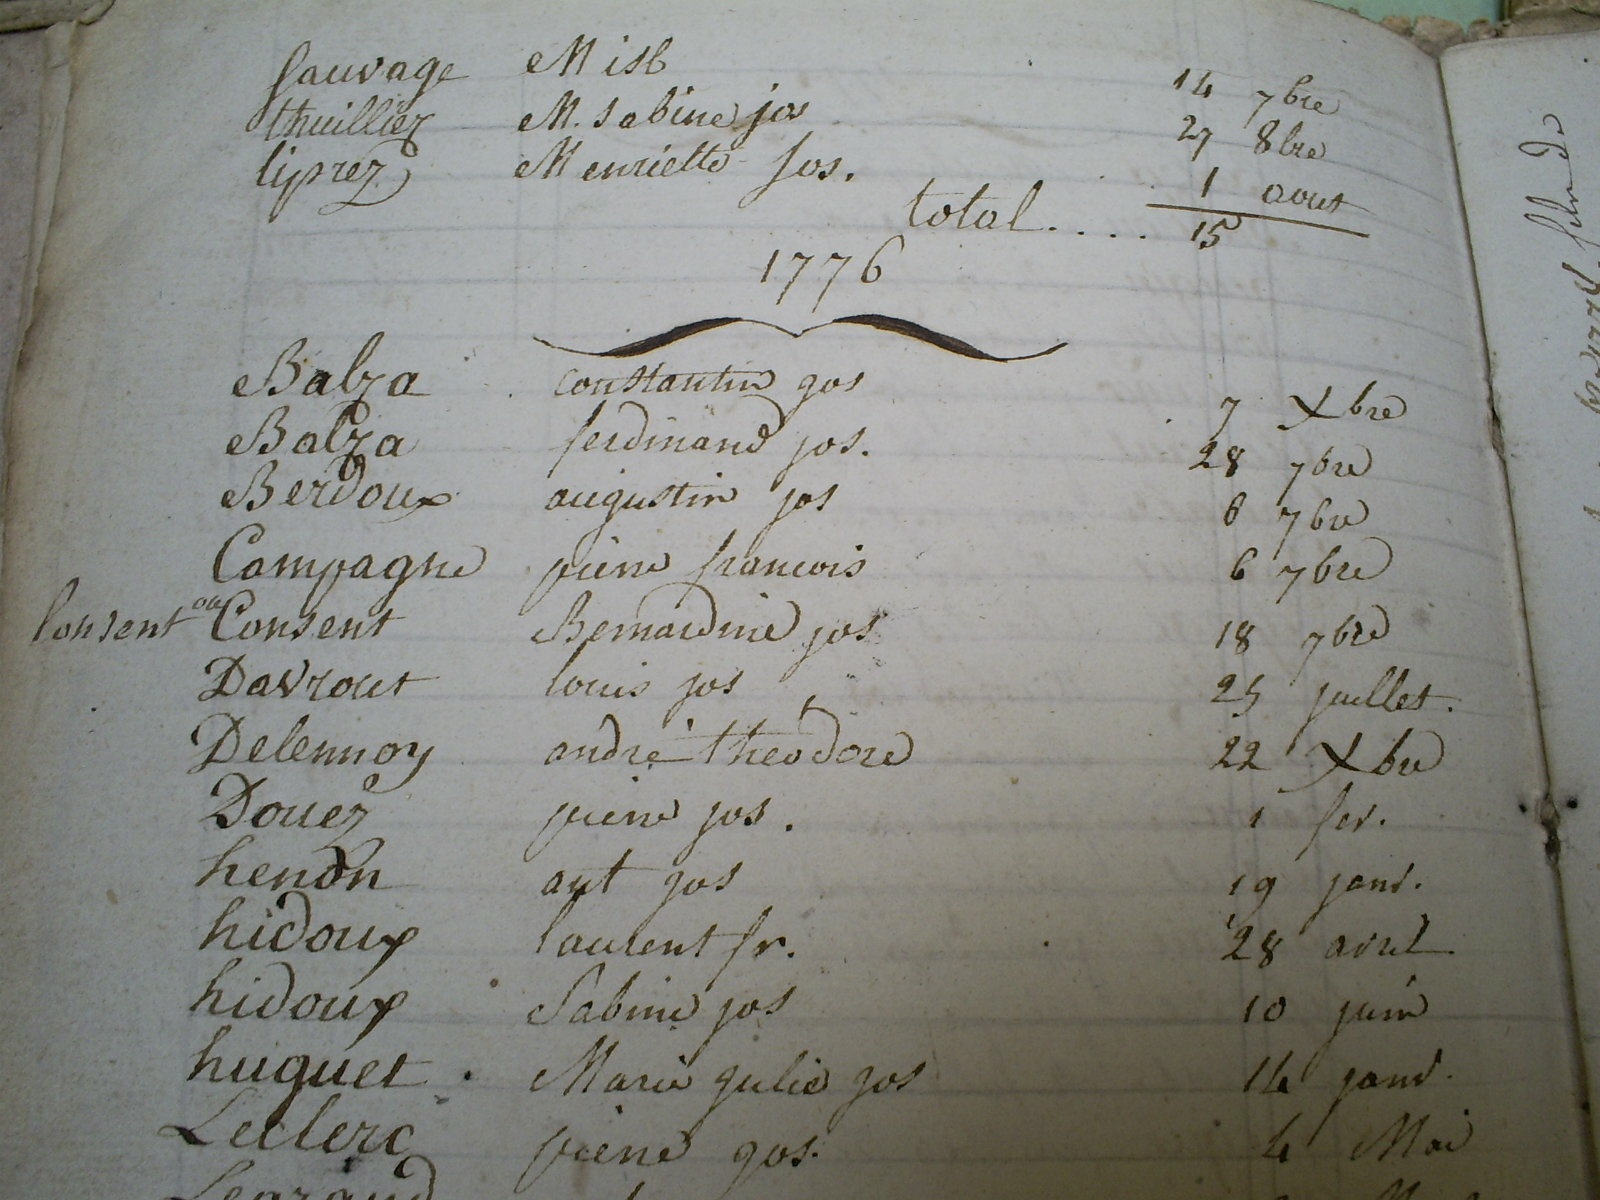 Sauvage M isb 14 7bre
thuilliez M. Sabine jos 27 8bre
liprez M enriette jos. 1 aout
total.... 15
1776
Balza constantin jos 7 Xbre
Balza ferdinand jos. 28 7bre
Berdoux augustin jos 6 7bre
Campagne pierre francois 6 7bre
Consent ou Consent Bernardine jos 18 7bre
Davrout louis jos 25 juillet.
Delennoy andré théodore 22 Xbre
Douez pierre jos. 1 fev.
henon ant jos 19 janv.
hidoux laurent fr. 28 avril
hidoux Sabine jos 10 juin
huguet. Marie julie jos 14 janv.
Leclerc pierre jos. 4 Mai
Legrand